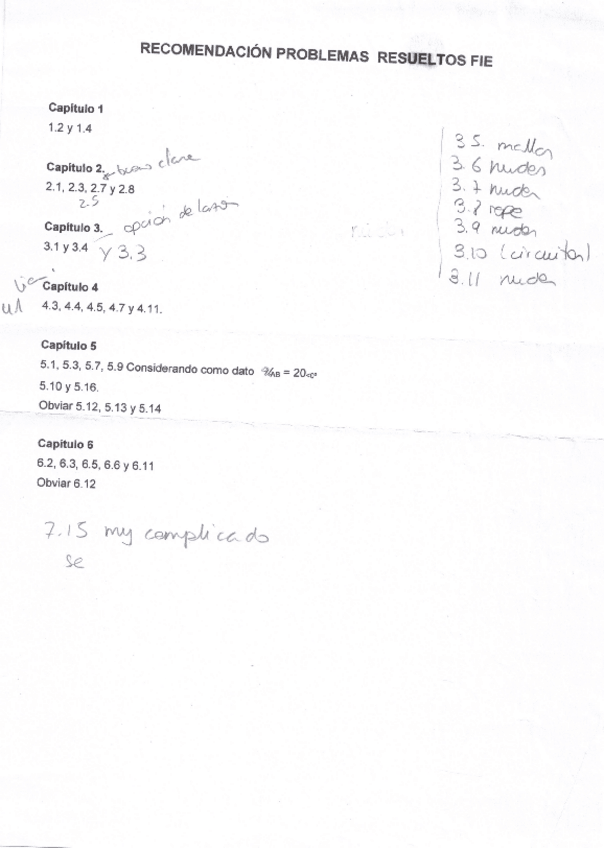 RECOMENDACIÓN PROBLEMAS RESUELTOS FIE
Capítulo 1
1.2 y 1.4
Capítulo 2. clave
2.1, 2.3, 2.7 y 2.8
2.5
Capítulo 3. opción de
3.1 y 3.4 y 3.3
Capítulo 4
4.3, 4.4, 4.5, 4.7 y 4.11.
Capítulo 5
5.1, 5.3, 5.7, 5.9 Considerando como dato = 20
5.10 y 5.16.
Obviar 5.12, 5.13 y 5.14
Capítulo 6
6.2, 6.3, 6.5, 6.6 y 6.11
Obviar 6.12
7.15 my complicado
se
3.5. mallas
3.6 nudos
3.7 nudos
3.8 repe
3.9 nudos
3.10 (circuitos)
3.11 nudos